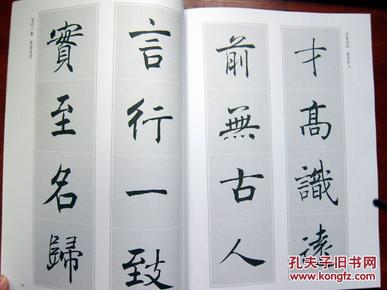 才高識遠
前無古人
言行一致
實至名歸
孔夫子旧书网